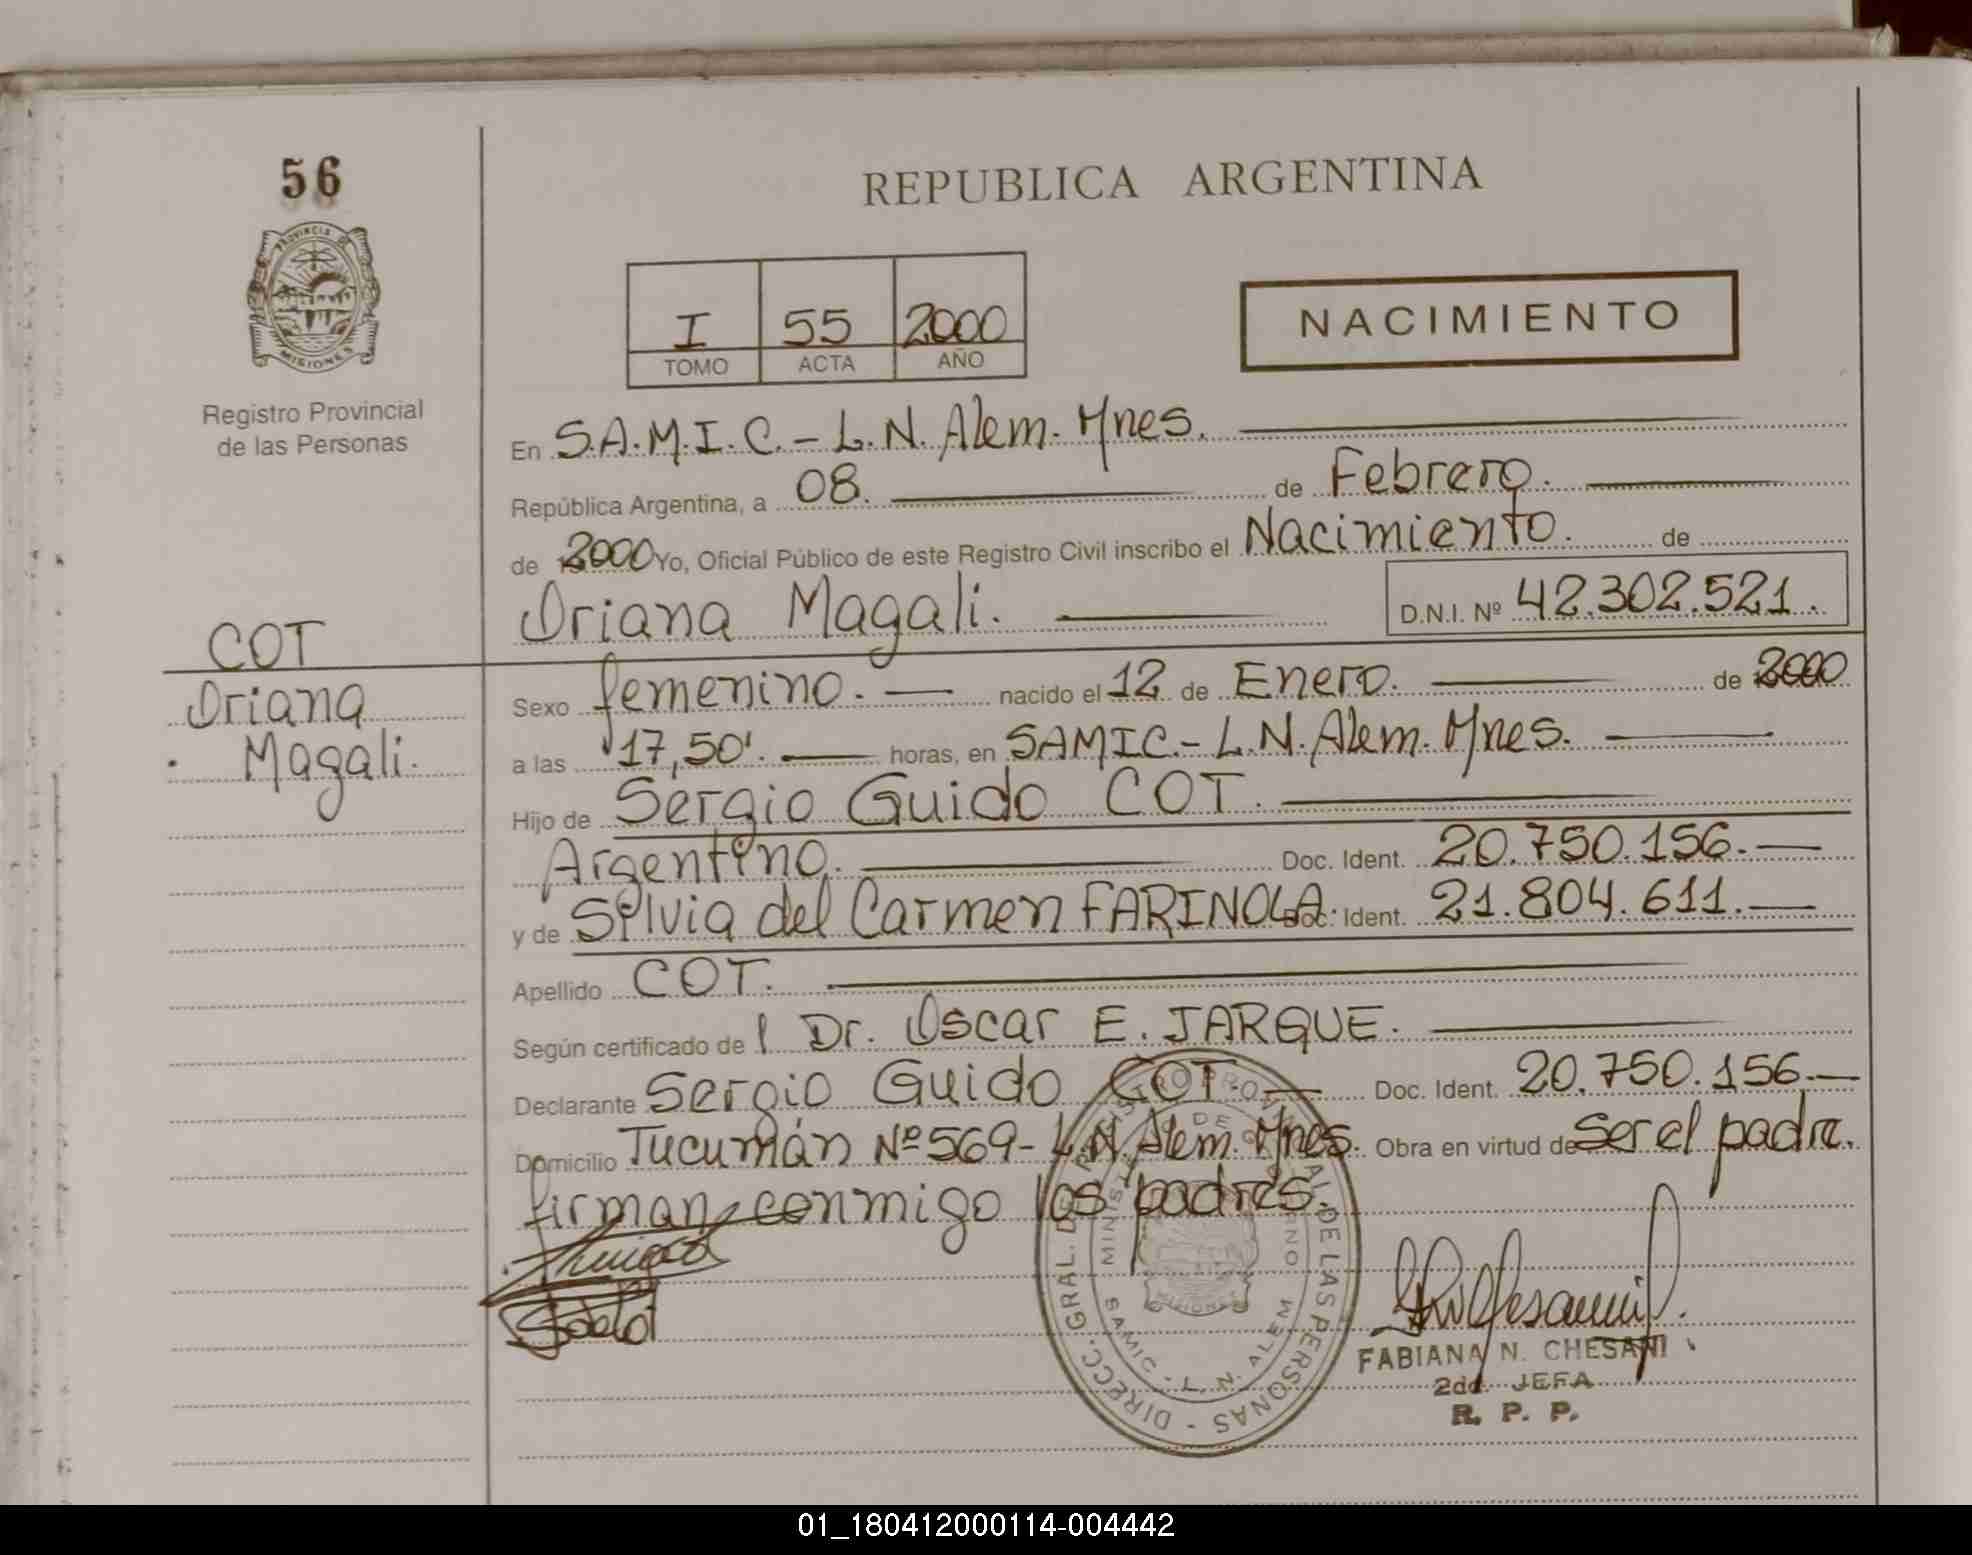 56
PROVINCIA DE
MISIONES
Registro Provincial
de las Personas
COT
Oriana
Magali.
REPUBLICA ARGENTINA
I 55 2000
TOMO ACTA AÑO
NACIMIENTO
En S.A.M.I.C.- L.N. Alem. Mnes.
República Argentina, a 08. de Febrero.
de 2000 Yo, Oficial Público de este Registro Civil inscribo el Nacimiento. de
Oriana Magali. D.N.I. Nº 42.302.521.
Sexo femenino. nacido el 12 de Enero. de 2000
a las 17,50'. horas, en SAMIC.- L.N. Alem. Mnes.
Hijo de Sergio Guido COT.
Argentino. Doc. Ident. 20.750.156.
y de Silvia del Carmen FARINOLA. Doc. Ident. 21.804.611.
Apellido COT.
Según certificado de l Dr. Oscar E. JARQUE.
Declarante Sergio Guido COT. Doc. Ident. 20.750.156.
Domicilio Tucumán Nº 569- L.N. Alem. Mnes. Obra en virtud de Ser el padre.
firman conmigo los padres.
DIRECC. GRAL. DEL REGISTRO PROVINCIAL DE LAS PERSONAS
MINISTERIO DE GOBIERNO
MISIONES
SAMIC - L. N. ALEM
FABIANA N. CHESANI
2da. JEFA
R. P. P.
01_180412000114-004442